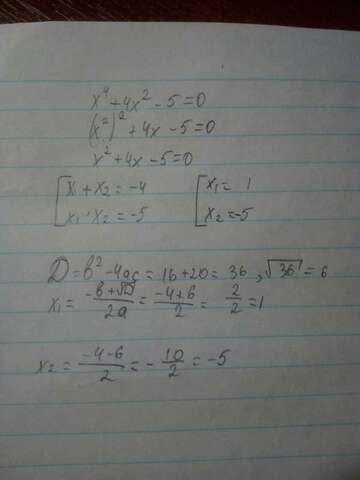 x⁴ + 4x² - 5 = 0
(x²)² + 4x - 5 = 0
x² + 4x - 5 = 0
[ x₁ + x₂ = -4 [ x₁ = 1
x₁ · x₂ = -5 x₂ = -5
D = b² - 4ac = 16 + 20 = 36 , √36 = 6
x₁ = (-b + √D)/2a = (-4 + 6)/2 = 2/2 = 1
x₂ = (-4 - 6)/2 = - 10/2 = -5